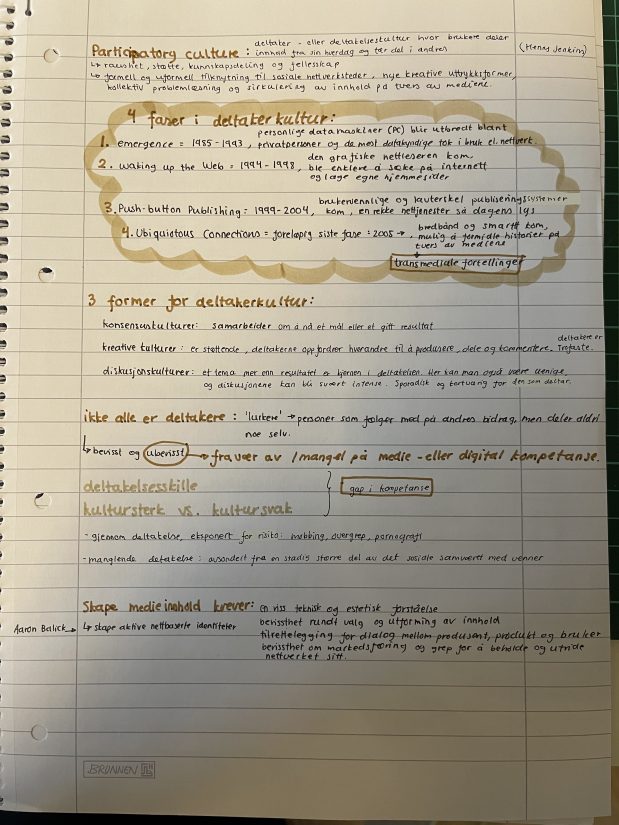 deltaker - eller deltakelsestkultur hvor brukere deler
Participatory culture : innhold fra sin hverdag og tar del i andres (Henry Jenkins)
↳ raushet, støtte, kunnskapsdeling og fellesskap
↳ formell og uformell tilknytning til sosiale nettverksteder, nye kreative uttrykksformer,
kollektiv problemløsning og sirkulering av innhold på tvers av mediene.
4 faser i deltakerkultur:
personlige datamaskiner (PC) blir utbredt blant
1. emergence = 1985-1993, privatpersoner og de mest datakyndige tok i bruk el. nettverk.
2. waking up the Web = 1994-1998, den grafiske nettleseren kom,
ble enklere å søke på internett
og lage egne hjemmesider
3. Push-button Publishing: 1999-2004, brukervennlige og lavterskel publiseringssystemer
kom, en rekke nettjenester så dagens lys
4. Ubiquitous Connections = foreløpig siste fase : 2005 → bredbånd og smarttlf kom,
mulig å formidle historier på
tvers av mediene
transmediale fortellinger
3 former for deltakerkultur:
konsensuskulturer: samarbeider om å nå et mål eller et gitt resultat
deltakere er
kreative kulturer: er støttende, deltakerne oppfordrer hverandre til å produsere, dele og kommentere. Trofaste.
diskusjonskulturer: et tema mer enn resultatet er kjernen i deltakelsen. Her kan man også være uenige,
og diskusjonene kan bli svært intense. Sporadisk og kortvarig for den som deltar.
ikke alle er deltakere : 'lurkere' → personer som følger med på andres bidrag, men deler aldri
noe selv.
↳ bevisst og ubevisst → fravær av / mangel på medie - eller digital kompetanse.
deltakelsesskille
kultursterk vs. kultursvak } gap i kompetanse
- gjennom deltakelse, eksponert for risiko: mobbing, overgrep, pornografi
- manglende deltakelse : avsondert fra en stadig større del av det sosiale samværet med venner
Skape medieinnhold krever: en viss teknisk og estetisk forståelse
Aaron Balick → ↳ skape aktive nettbaserte identiteter bevissthet rundt valg og utforming av innhold
tilrettelegging for dialog mellom produsent, produkt og bruker
bevissthet om markedsføring og grep for å beholde og utvide
nettverket sitt.
BRUNNEN